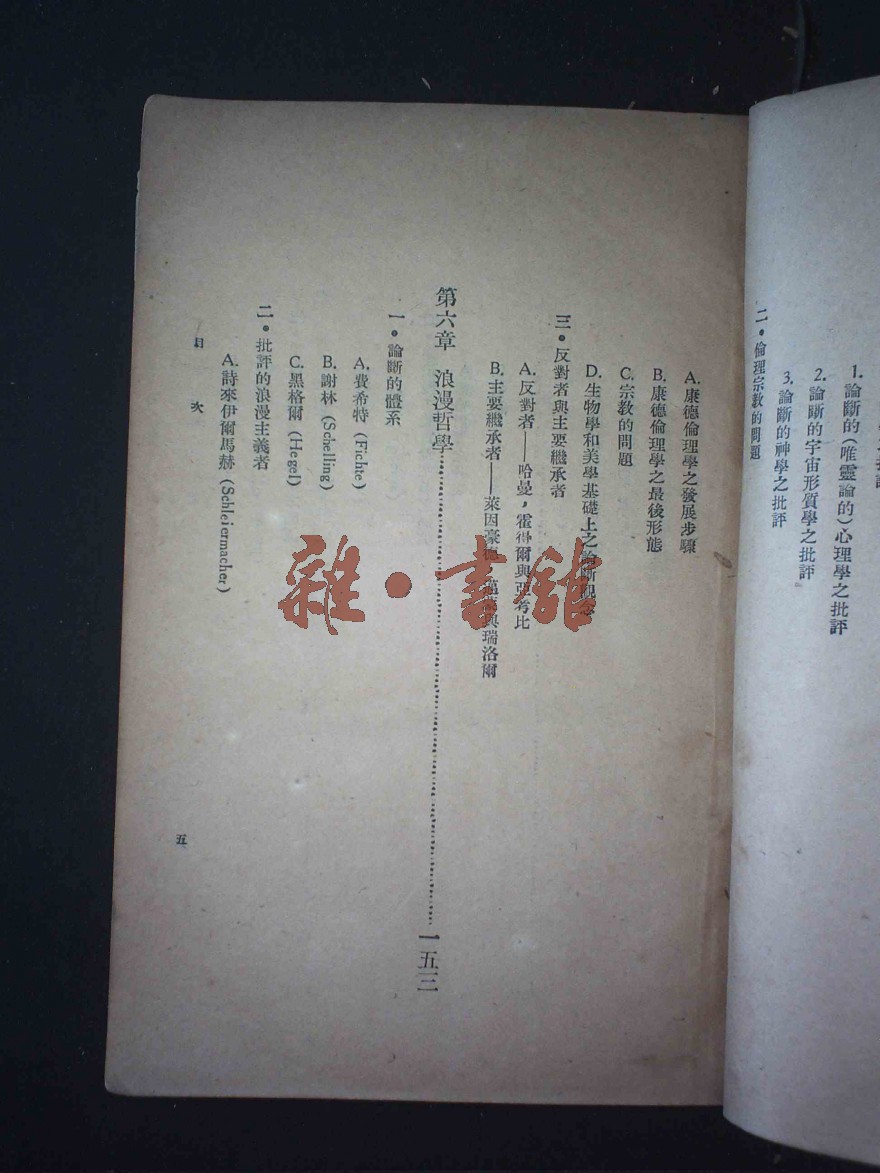 1. 論斷的(唯靈論的)心理學之批評
2. 論斷的宇宙形質學之批評
3. 論斷的神學之批評
二•倫理宗教的問題
A. 康德倫理學之發展步驟
B. 康德倫理學之最後形態
C. 宗教的問題
D. 生物學和美學基礎上之論斷觀念
三•反對者與主要繼承者
A. 反對者——哈曼，霍得爾與亞考比
B. 主要繼承者——萊因豪與瑞洛爾
第六章 浪漫哲學……一五三
一•論斷的體系
A. 費希特 (Fichte)
B. 謝林 (Schelling)
C. 黑格爾 (Hegel)
二•批評的浪漫主義者
A. 詩來伊爾馬赫 (Schleiermacher)
目次
五
雜•書館